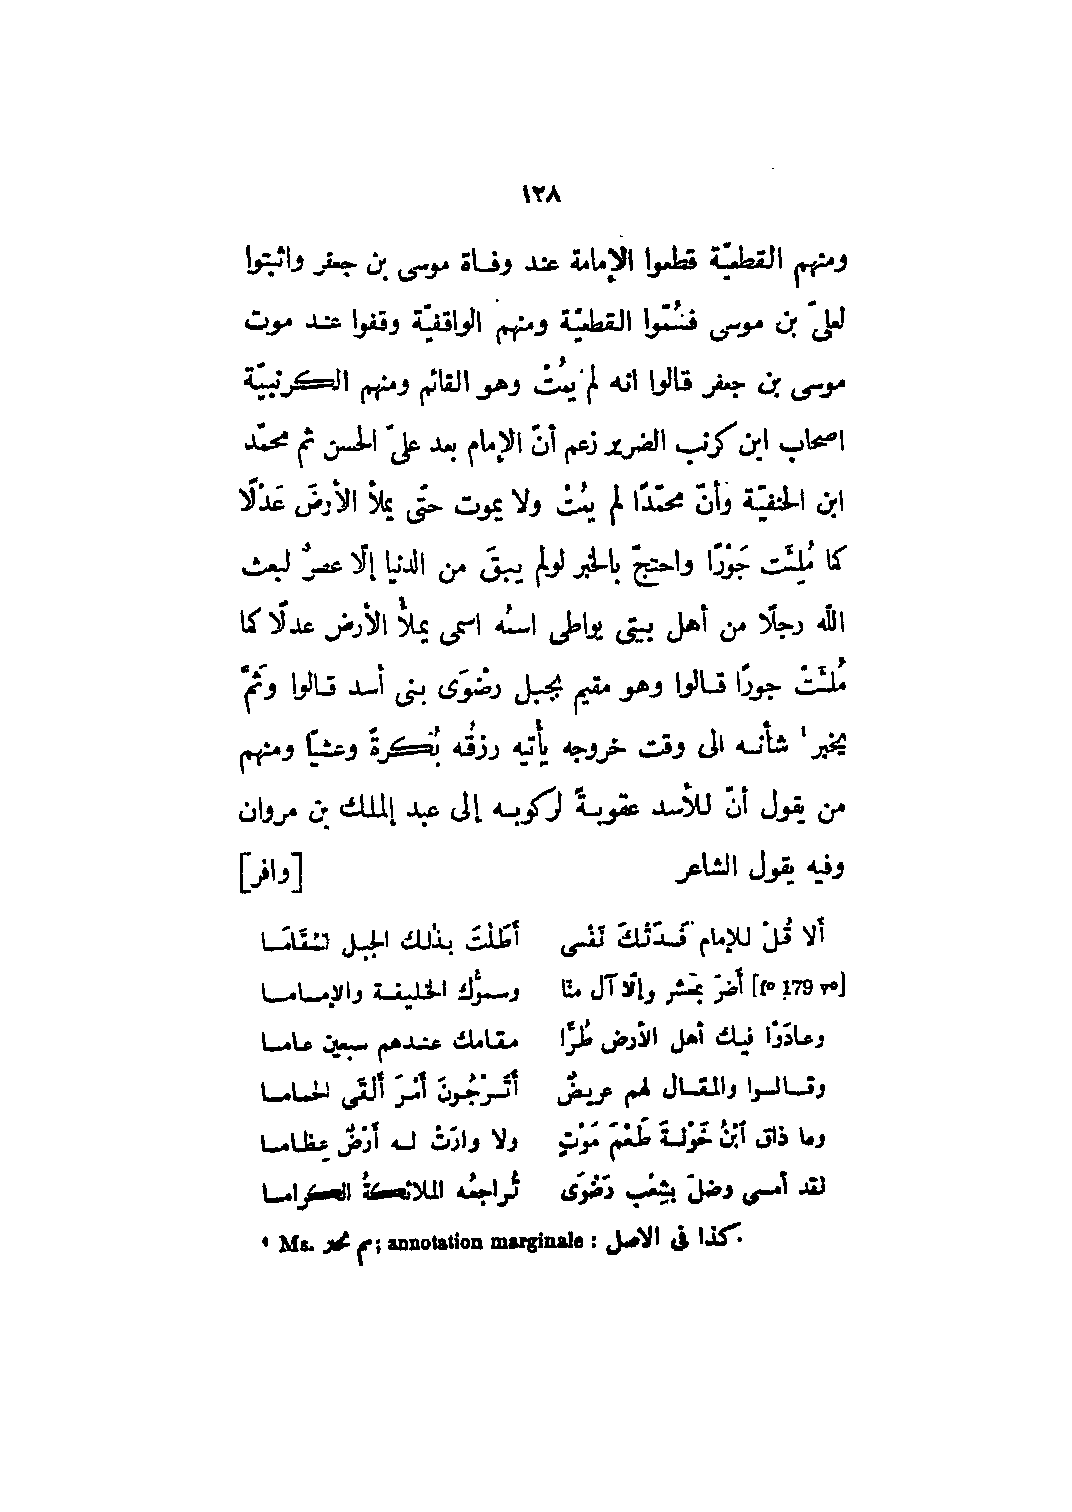 ١٢٨
ومنهم القطعيّة قطعوا الإمامة عند وفاة موسى بن جعفر واثبتوا
لعليّ بن موسى فسُمّوا القطعيّة ومنهم الواقفيّة وقفوا عند موت
موسى بن جعفر قالوا انه لم يمُتْ وهو القائم ومنهم الكرنبيّة
اصحاب ابن كرنب الضرير زعم أنّ الإمام بعد عليّ الحسن ثم محمّد
ابن الحنفيّة وأنّ محمّدًا لم يمُتْ ولا يموت حتّى يملأ الأرضَ عَدْلًا
كما مُلِئَت جَوْرًا واحتجّ بالخبر لولم يبقَ من الدنيا إلّا عصرٌ لبعث
الله رجلًا من أهل بيتى يواطى اسمُه اسمى يملأُ الأرض عدلًا كما
مُلئَتْ جورًا قالوا وهو مقيم بجبل رضْوَى بنى أسد قالوا وَثَمَّ
يخبر ' شأنه الى وقت خروجه يأتيه رزقُه بُكرةً وعشيًا ومنهم
من يقول أنّ للأسد عقوبةً لركوبه إلى عبد الملك بن مروان
وفيه يقول الشاعر [وافر]
ألا قُلْ للإمام فَدَتْكَ نَفْسى أَطَلْتَ بذلك الجبل المُقَامَا
[fº 179 vº] أَضرّ بمعْشر والّا آل منّا وسمؤُك الخليفة والإماما
وعادَوْا فيك أهل الأرض طُرًّا مقامك عندهم سبعين عاما
وقالوا والمقال لهم عريضٌ أَتَرْجُونَ أمْرَ ألقَي الحماما
وما ذاق ابْنُ خَوْلةَ طَعْمَ مَوْتٍ ولا وارَتْ له أَرْضٌ عِظاما
لقد أمسى وضلَ بشِعْب رَضْوَى تُراجعُه الملائكةُ الكراما
¹ Ms. م محمد; annotation marginale : كذا فى الاصل.